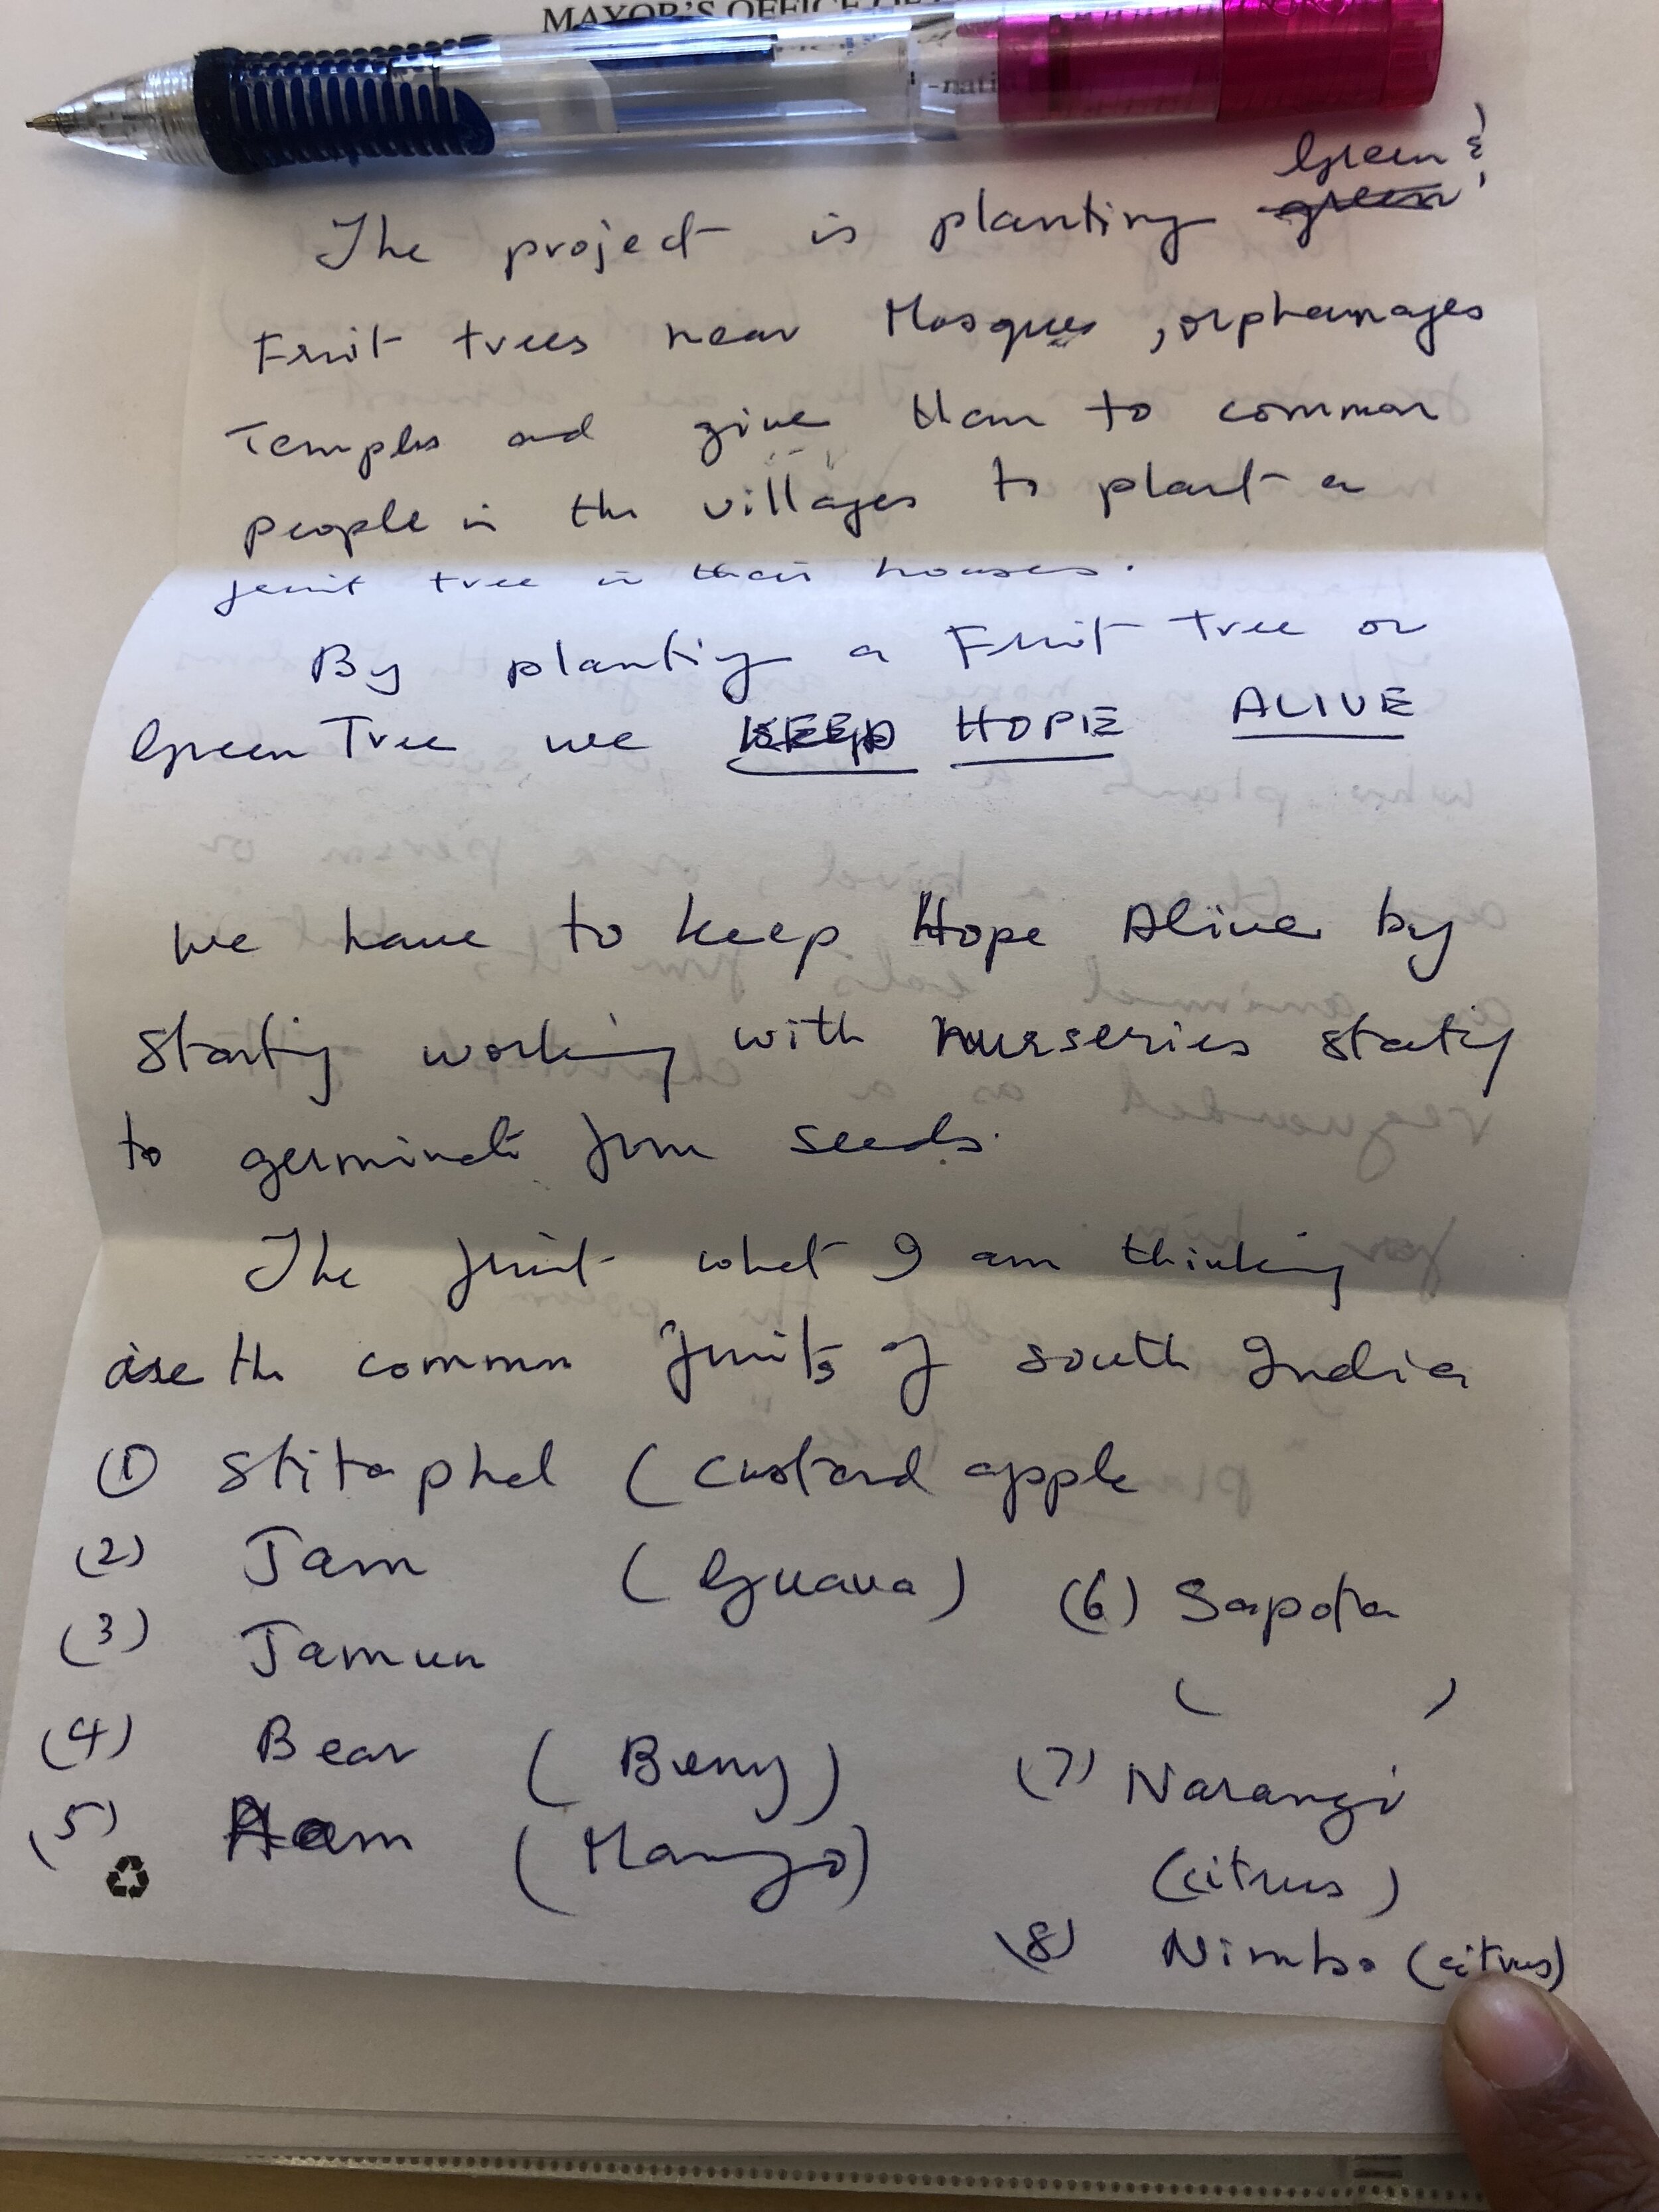 MAYOR'S OFFICE OF
-nati
Green &
The project is planting green
Fruit trees near Mosques, orphanages
Temples and give them to common
people in the villages to plant a
fruit tree in their houses.
By planting a Fruit tree or
Green Tree we KEEP HOPE ALIVE
We have to keep Hope Alive by
starting working with nurseries stating
to germinate from seeds.
The fruit what I am thinking
are the common fruits of south India
(1) Stitaphal (Custard apple
(2) Jam (Guava)
(3) Jamun
(4) Bear (Berry)
(5) Aam (Mango)
(6) Sapota
( )
(7) Narangi
(citrus)
(8) Nimbo (citrus)